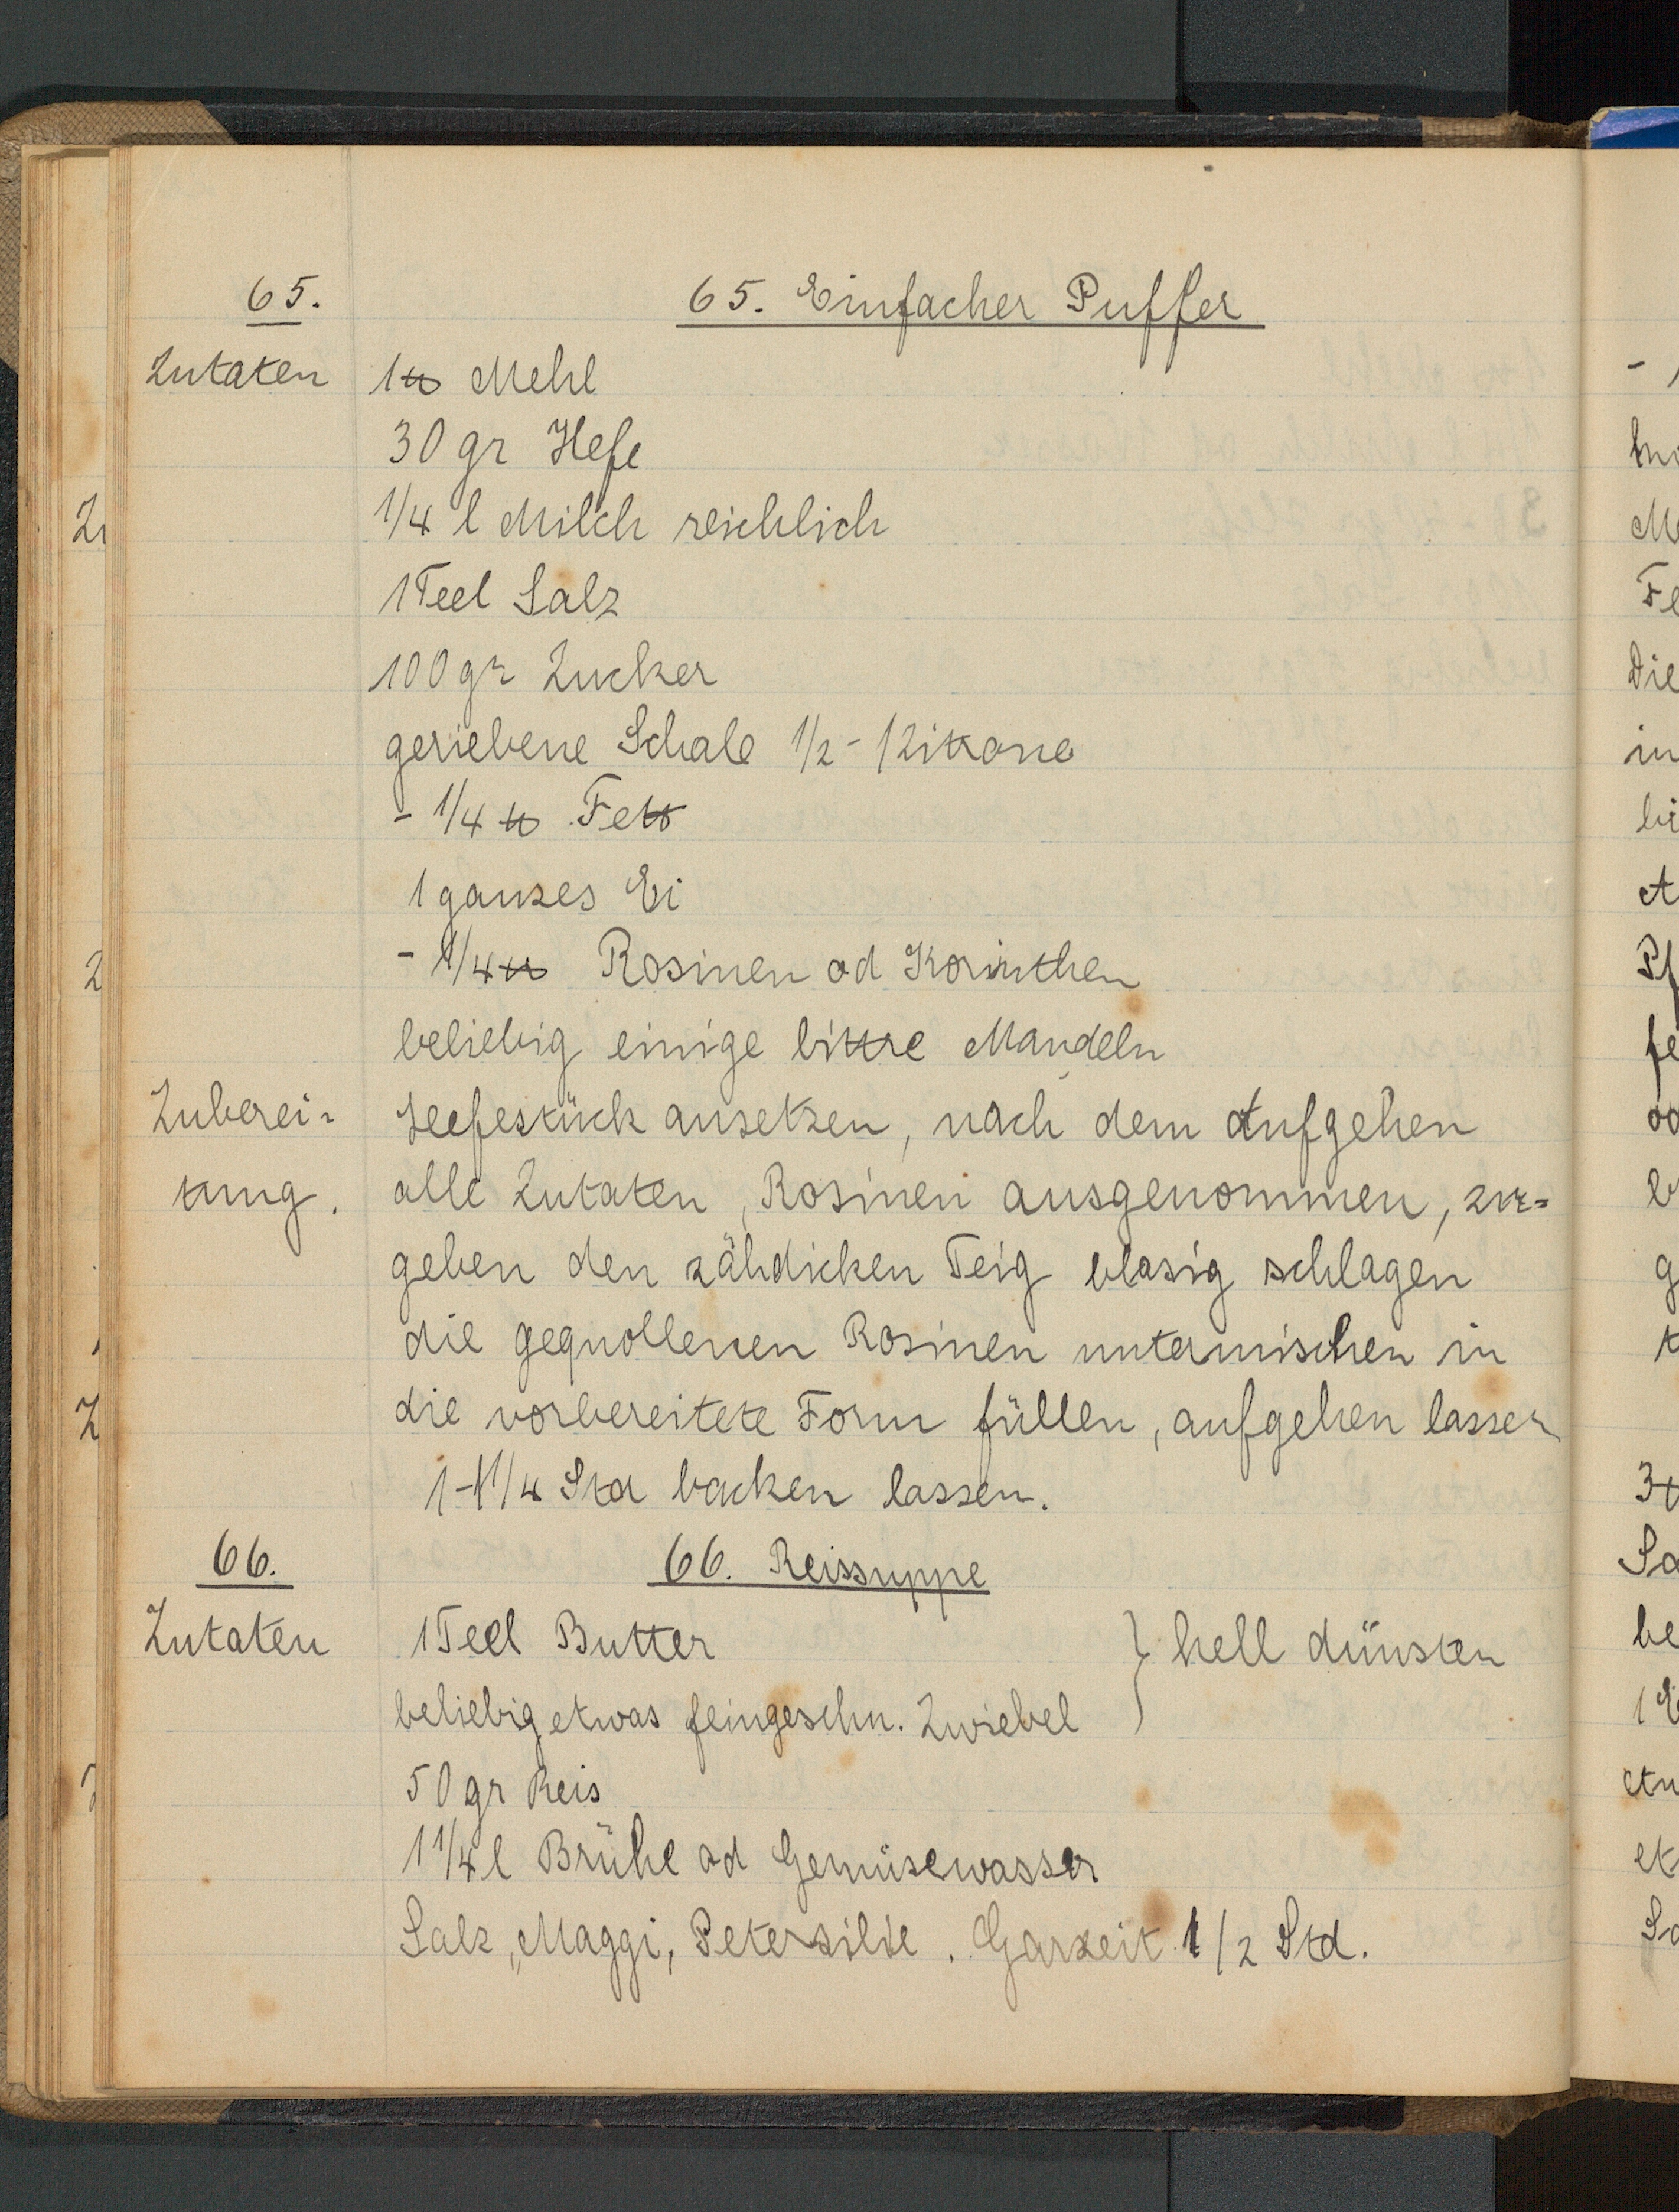 65. 65. Einfacher Puffer
Zutaten 1 ℔ Mehl
30 gr Hefe
1/4 l Milch reichlich
1 Teel Salz
100 gr Zucker
geriebene Schale 1/2 - 1 Zitrone
- 1/4 ℔ Fett
1 ganzes Ei
- 1/4 ℔ Rosinen od Korinthen
beliebig einige bittre Mandeln
Zuberei= Heefestück ansetzen, nach dem Aufgehen
tung. alle Zutaten, Rosinen ausgenommen, zu=
geben den zähdicken Teig blasig schlagen
die gequollenen Rosinen untermischen in
die vorbereitete Form füllen, aufgehen lassen
1-1 1/4 Std backen lassen.
66. 66. Reissuppe
Zutaten 1 Teel Butter } hell dünsten
beliebig etwas feingeschn. Zwiebel
50 gr Reis
1 1/4 l Brühe od Gemüsewasser
Salz, Maggi, Petersilie. Garzeit 1/2 Std.